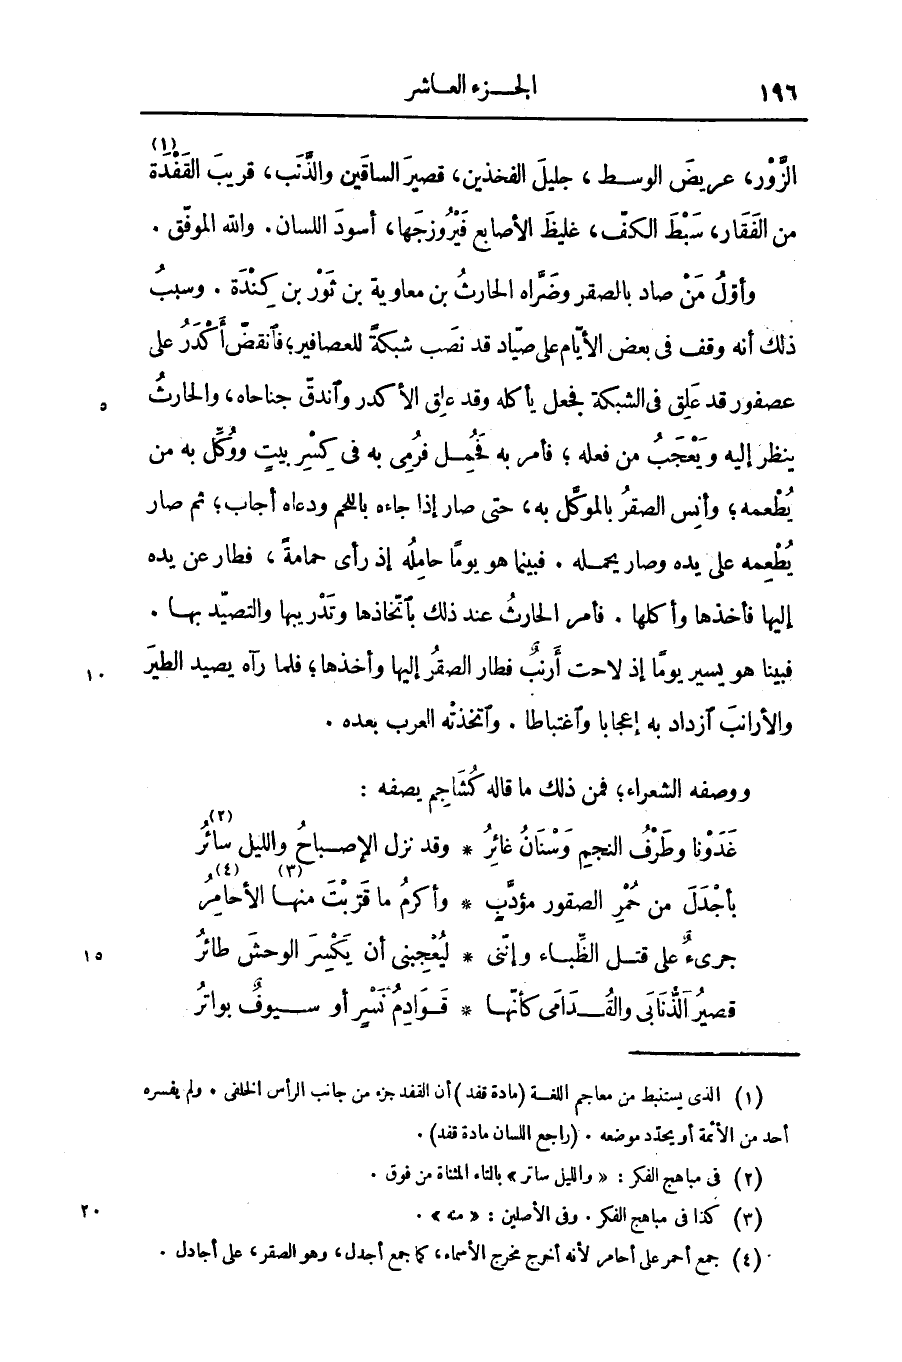 ١٩٦
الجزء العاشر
الزَّوْر، عريضَ الوسط ، جليلَ الفخذين، قصيرَ الساقَين والذَّنَب، قريبَ القَفْدَة (١)
من الفَقَار، سَبْطَ الكفّ، غليظَ الأصابع فَيْرُوزجَها، أسودَ اللسان. والله الموفّق .
وأوّلُ مَنْ صاد بالصقر وضَرَّاه الحارثُ بن معاوية بن ثَوْر بن كِنْدَة . وسببُ
ذلك أنه وقف فى بعض الأيّام على صيّاد قد نصَب شبكةً للعصافير؛ فٱنقضّ أَكْدَرُ على
عصفور قد عَلِق فى الشبكة فجعل يأكله وقد علِق الأكدر وٱندقّ جناحاه، والحارثُ
٥
ينظر إليه ويَعْجَبُ من فعله ؛ فأمر به فحُمِل فرُمِى به فى كِسْرِ بيتٍ ووُكِّل به من
يُطْعمه؛ وأَنِس الصقرُ بالموكَّل به، حتى صار إذا جاءه باللحم ودعاه أجاب؛ ثم صار
يُطْعِمه على يده وصار يحمله . فبينما هو يومًا حامِلُه إذ رأى حمامةً ، فطار عن يده
إليها فأخذها وأكلها . فأمر الحارثُ عند ذلك بٱتّخاذها وتَدْريبها والتصيّد بها .
فبينا هو يسير يومًا إذ لاحت أرنبٌ فطار الصقرُ إليها وأخذها؛ فلما رآه يصيد الطيرَ
١٠
والأرانبَ ٱزداد به إعجابا وٱغتباطا . وٱتّخذتْه العرب بعده .
ووصفه الشعراء؛ فمن ذلك ما قاله كُشَاجِم يصفه :
غَدَوْنا وطَرْفُ النجمِ وَسْنَانُ غائِرُ * وقد نزل الإصباحُ والليل سائرُ (٢)
بأجْدَلَ من حُمْرِ الصقور مؤدَّبٍ * وأكرمُ ما قَرّبْتَ منها (٣) الأحامِرُ (٤)
جرىءٌ على قتل الظِّباء وإنّنى * ليُعْجِبنى أن يَكْسِرَ الوحشَ طائرُ
١٥
قصيرُ ٱلذُّنَابَى والقُدَامَى كأنّها * قَوَادِمُ نَسْرٍ أو سيوفٌ بواترُ
(١) الذى يستنبط من معاجم اللغة (مادة قفد) أن القفد جزء من جانب الرأس الخلفى . ولم يفسره
أحد من الأئمة أو يحدّد موضعه . (راجع اللسان مادة قفد) .
(٢) فى مباهج الفكر : « والليل ساتر» بالتاء المثناة من فوق .
(٣) كذا فى مباهج الفكر . وفى الأصلين : « منه » .
٢٠
(٤) جمع أحمر على أحامر لأنه أخرج مخرج الأسماء، كما جمع أجدل، وهو الصقر، على أجادل .